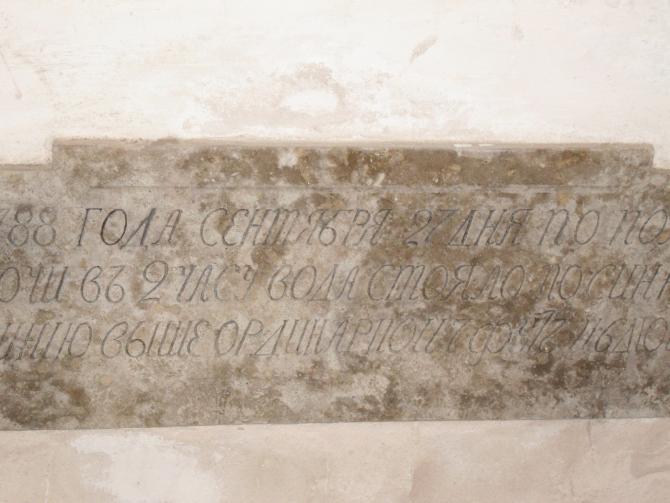 788 ГОДА СЕНТЯБРЯ 27 ДНЯ ПО ПО
ОЧИ ВЪ 2 ЧАСУ ВОДА СТОЯЛО ПО СИН
ИНИЮ ВЫШЕ ОРДИНАРНОЙ 7 ФУТЪ